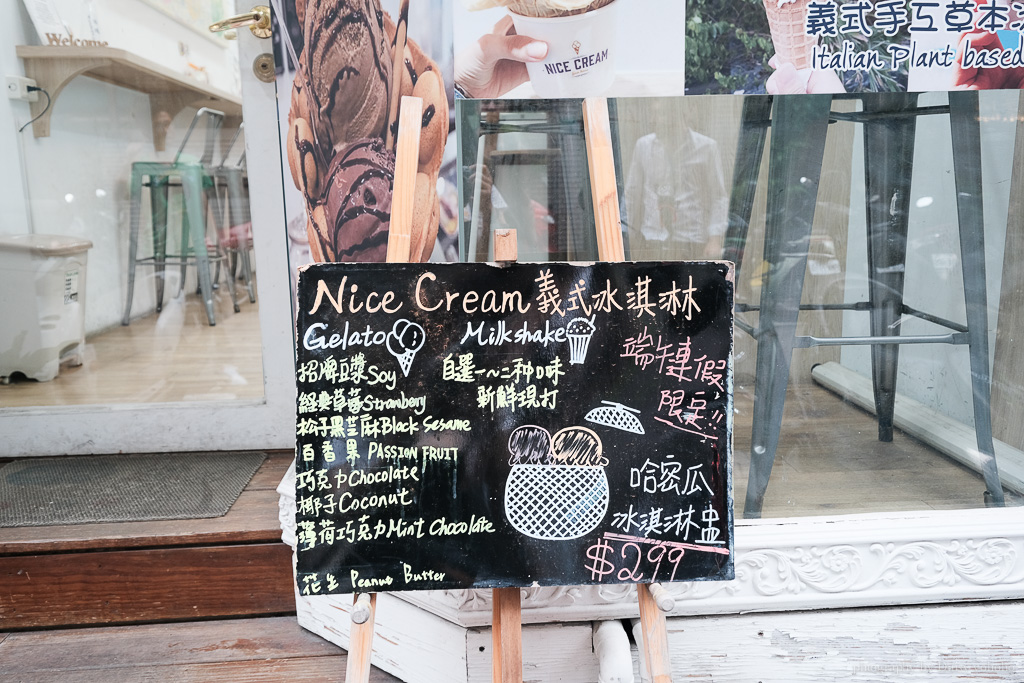 Welcome
NICE CREAM
義式手工草本冰
Italian Plant based
Nice Cream 義式冰淇淋
Gelato
Milkshake
招牌豆漿Soy
經典草莓Stranbery
松子黑芝麻Black Sesame
百香果 PASSION FRUIT
巧克力Chocolate
椰子Coconut
薄荷巧克力Mint Chocolate
花生 Peanut Butter
自選一~二种口味
新鮮現打
端午連假
限定!!
哈密瓜
冰淇淋盅
$299